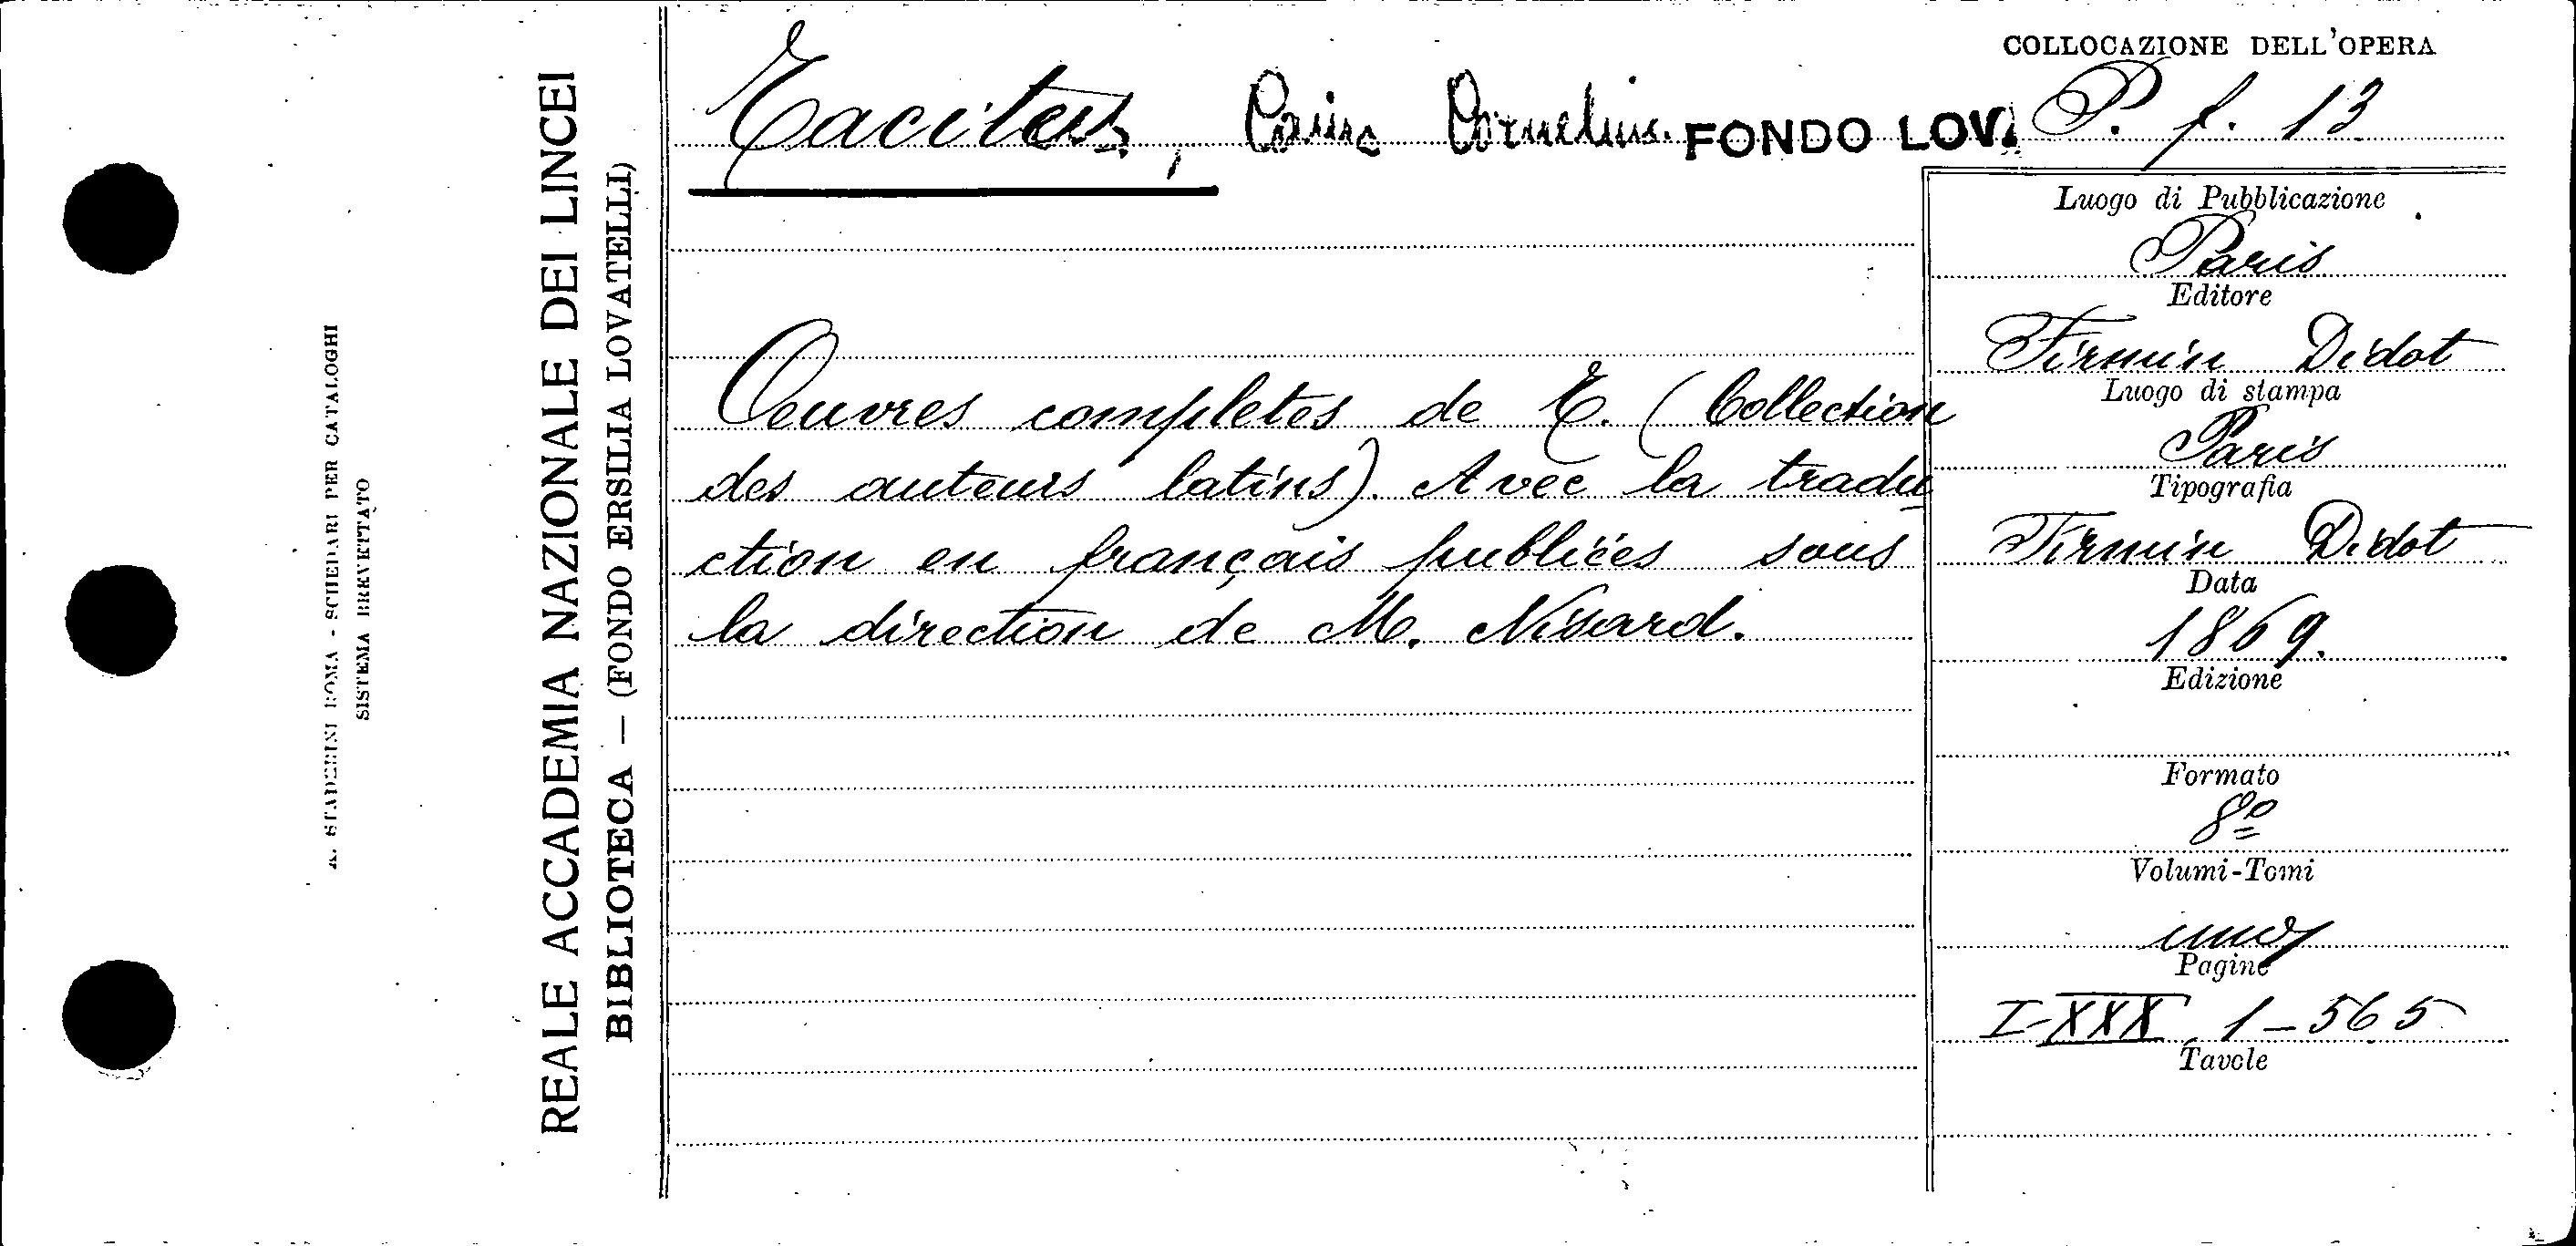 COLLOCAZIONE DELL'OPERA
Tacitus, Caius Cornelius. FONDO LOV. P. f. 13
Oeuvres completes de T. (Collection
des auteurs latins). Avec la tradu
ction en français publiées sous
la direction de M. Nisard.
Luogo di Pubblicazione
Paris
Editore
Firmin Didot
Luogo di stampa
Paris
Tipografia
Firmin Didot
Data
1869.
Edizione
Formato
8º
Volumi-Tomi
uno
Pagine
I-XXX, 1-565
Tavole
REALE ACCADEMIA NAZIONALE DEI LINCEI
BIBLIOTECA — (FONDO ERSILIA LOVATELLI)
A. STADERINI ROMA - SCHEDARI PER CATALOGHI
SISTEMA BREVETTATO